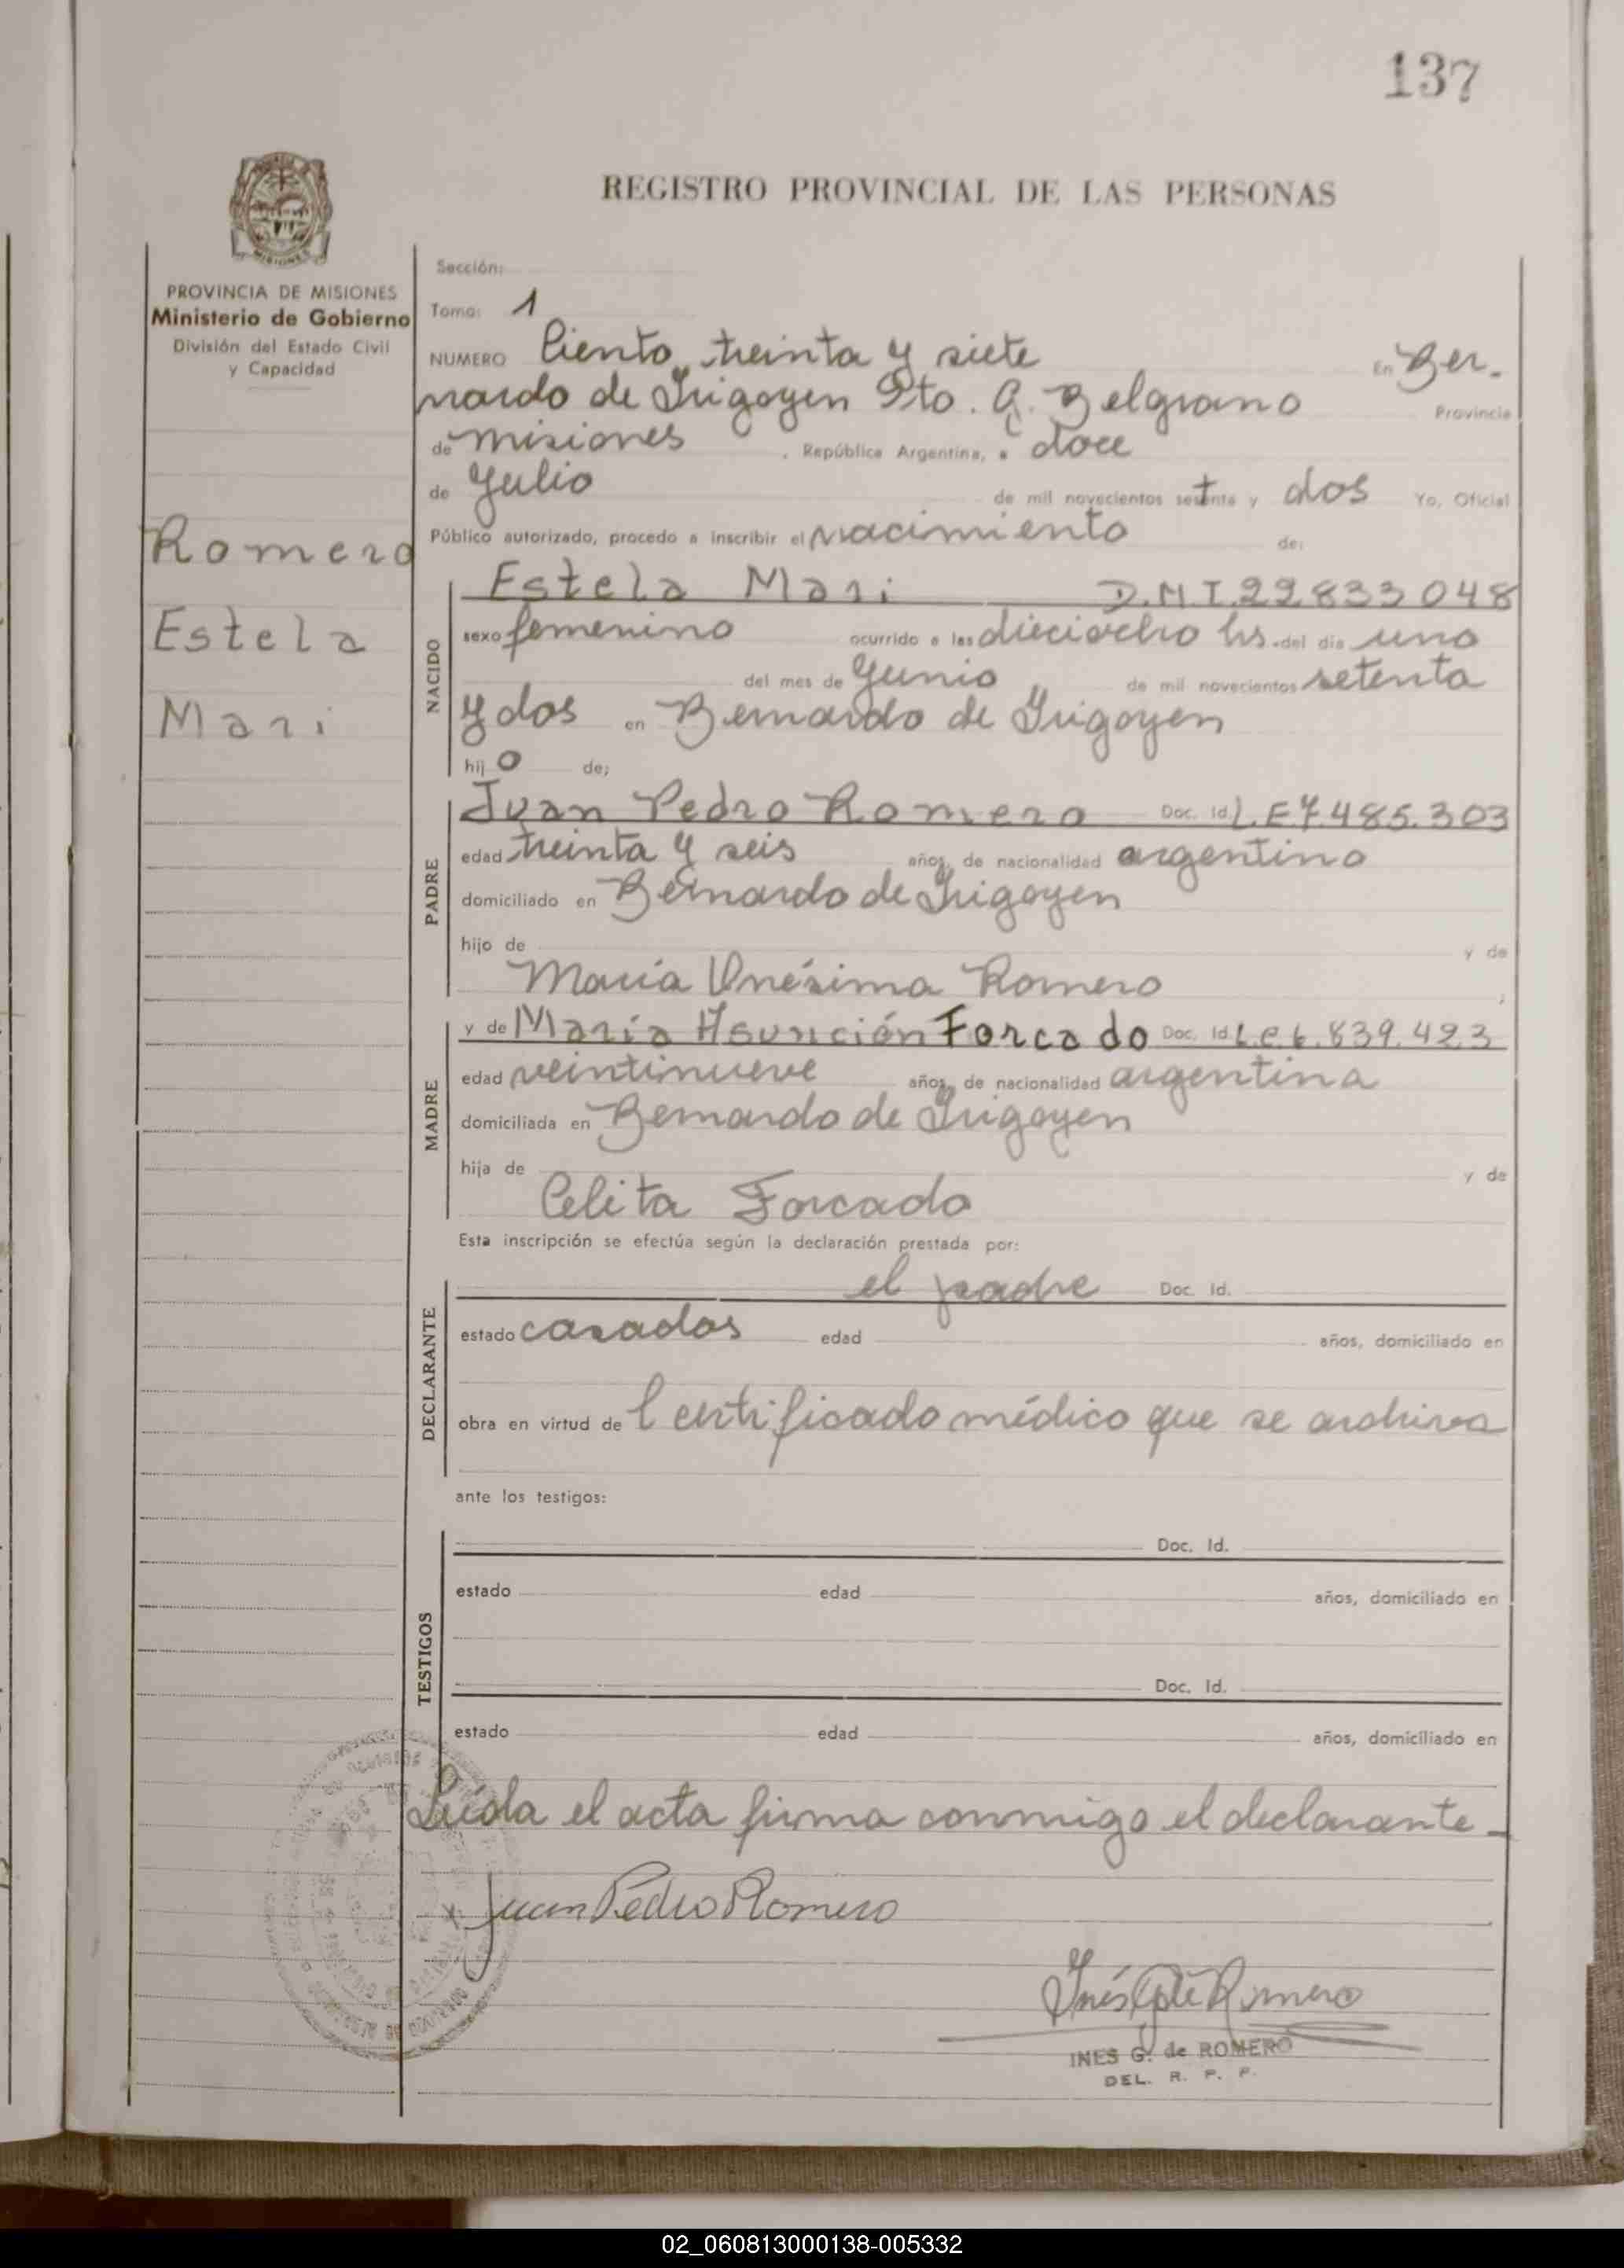 137
REGISTRO PROVINCIAL DE LAS PERSONAS
MISIONES
PROVINCIA DE MISIONES
Ministerio de Gobierno
División del Estado Civil
y Capacidad
Romero
Estela
Mari
Sección:
Tomo: 1
NUMERO Ciento treinta y siete En Ber-
nardo de Irigoyen Dto. G. Belgrano Provincia
de Misiones, República Argentina, a doce
de Julio de mil novecientos setenta y dos Yo, Oficial
Público autorizado, procedo a inscribir el nacimiento de:
NACIDO
Estela Mari D.N.I. 22.833.048
sexo femenino ocurrido a las dieciocho hs. del día uno
del mes de Junio de mil novecientos setenta
y dos en Bernardo de Irigoyen
hijo de;
PADRE
Juan Pedro Romero Doc. Id. L.E 7.485.303
edad treinta y seis años, de nacionalidad argentino
domiciliado en Bernardo de Irigoyen
hijo de y de
María Onésima Romero ;
MADRE
y de María Asunción Forcado Doc. Id. L.C 6.839.423
edad veintinueve años, de nacionalidad argentina
domiciliada en Bernardo de Irigoyen
hija de y de
Celita Forcado
Esta inscripción se efectúa según la declaración prestada por:
DECLARANTE
el padre Doc. Id.
estado casados edad años, domiciliado en
obra en virtud de Certificado médico que se archiva
ante los testigos:
TESTIGOS
Doc. Id.
estado edad años, domiciliado en
Doc. Id.
estado edad años, domiciliado en
Leída el acta firma conmigo el declarante-
x Juan Pedro Romero
Inés G. de Romero
INES G. de ROMERO
DEL. R. P. P.
02_060813000138-005332